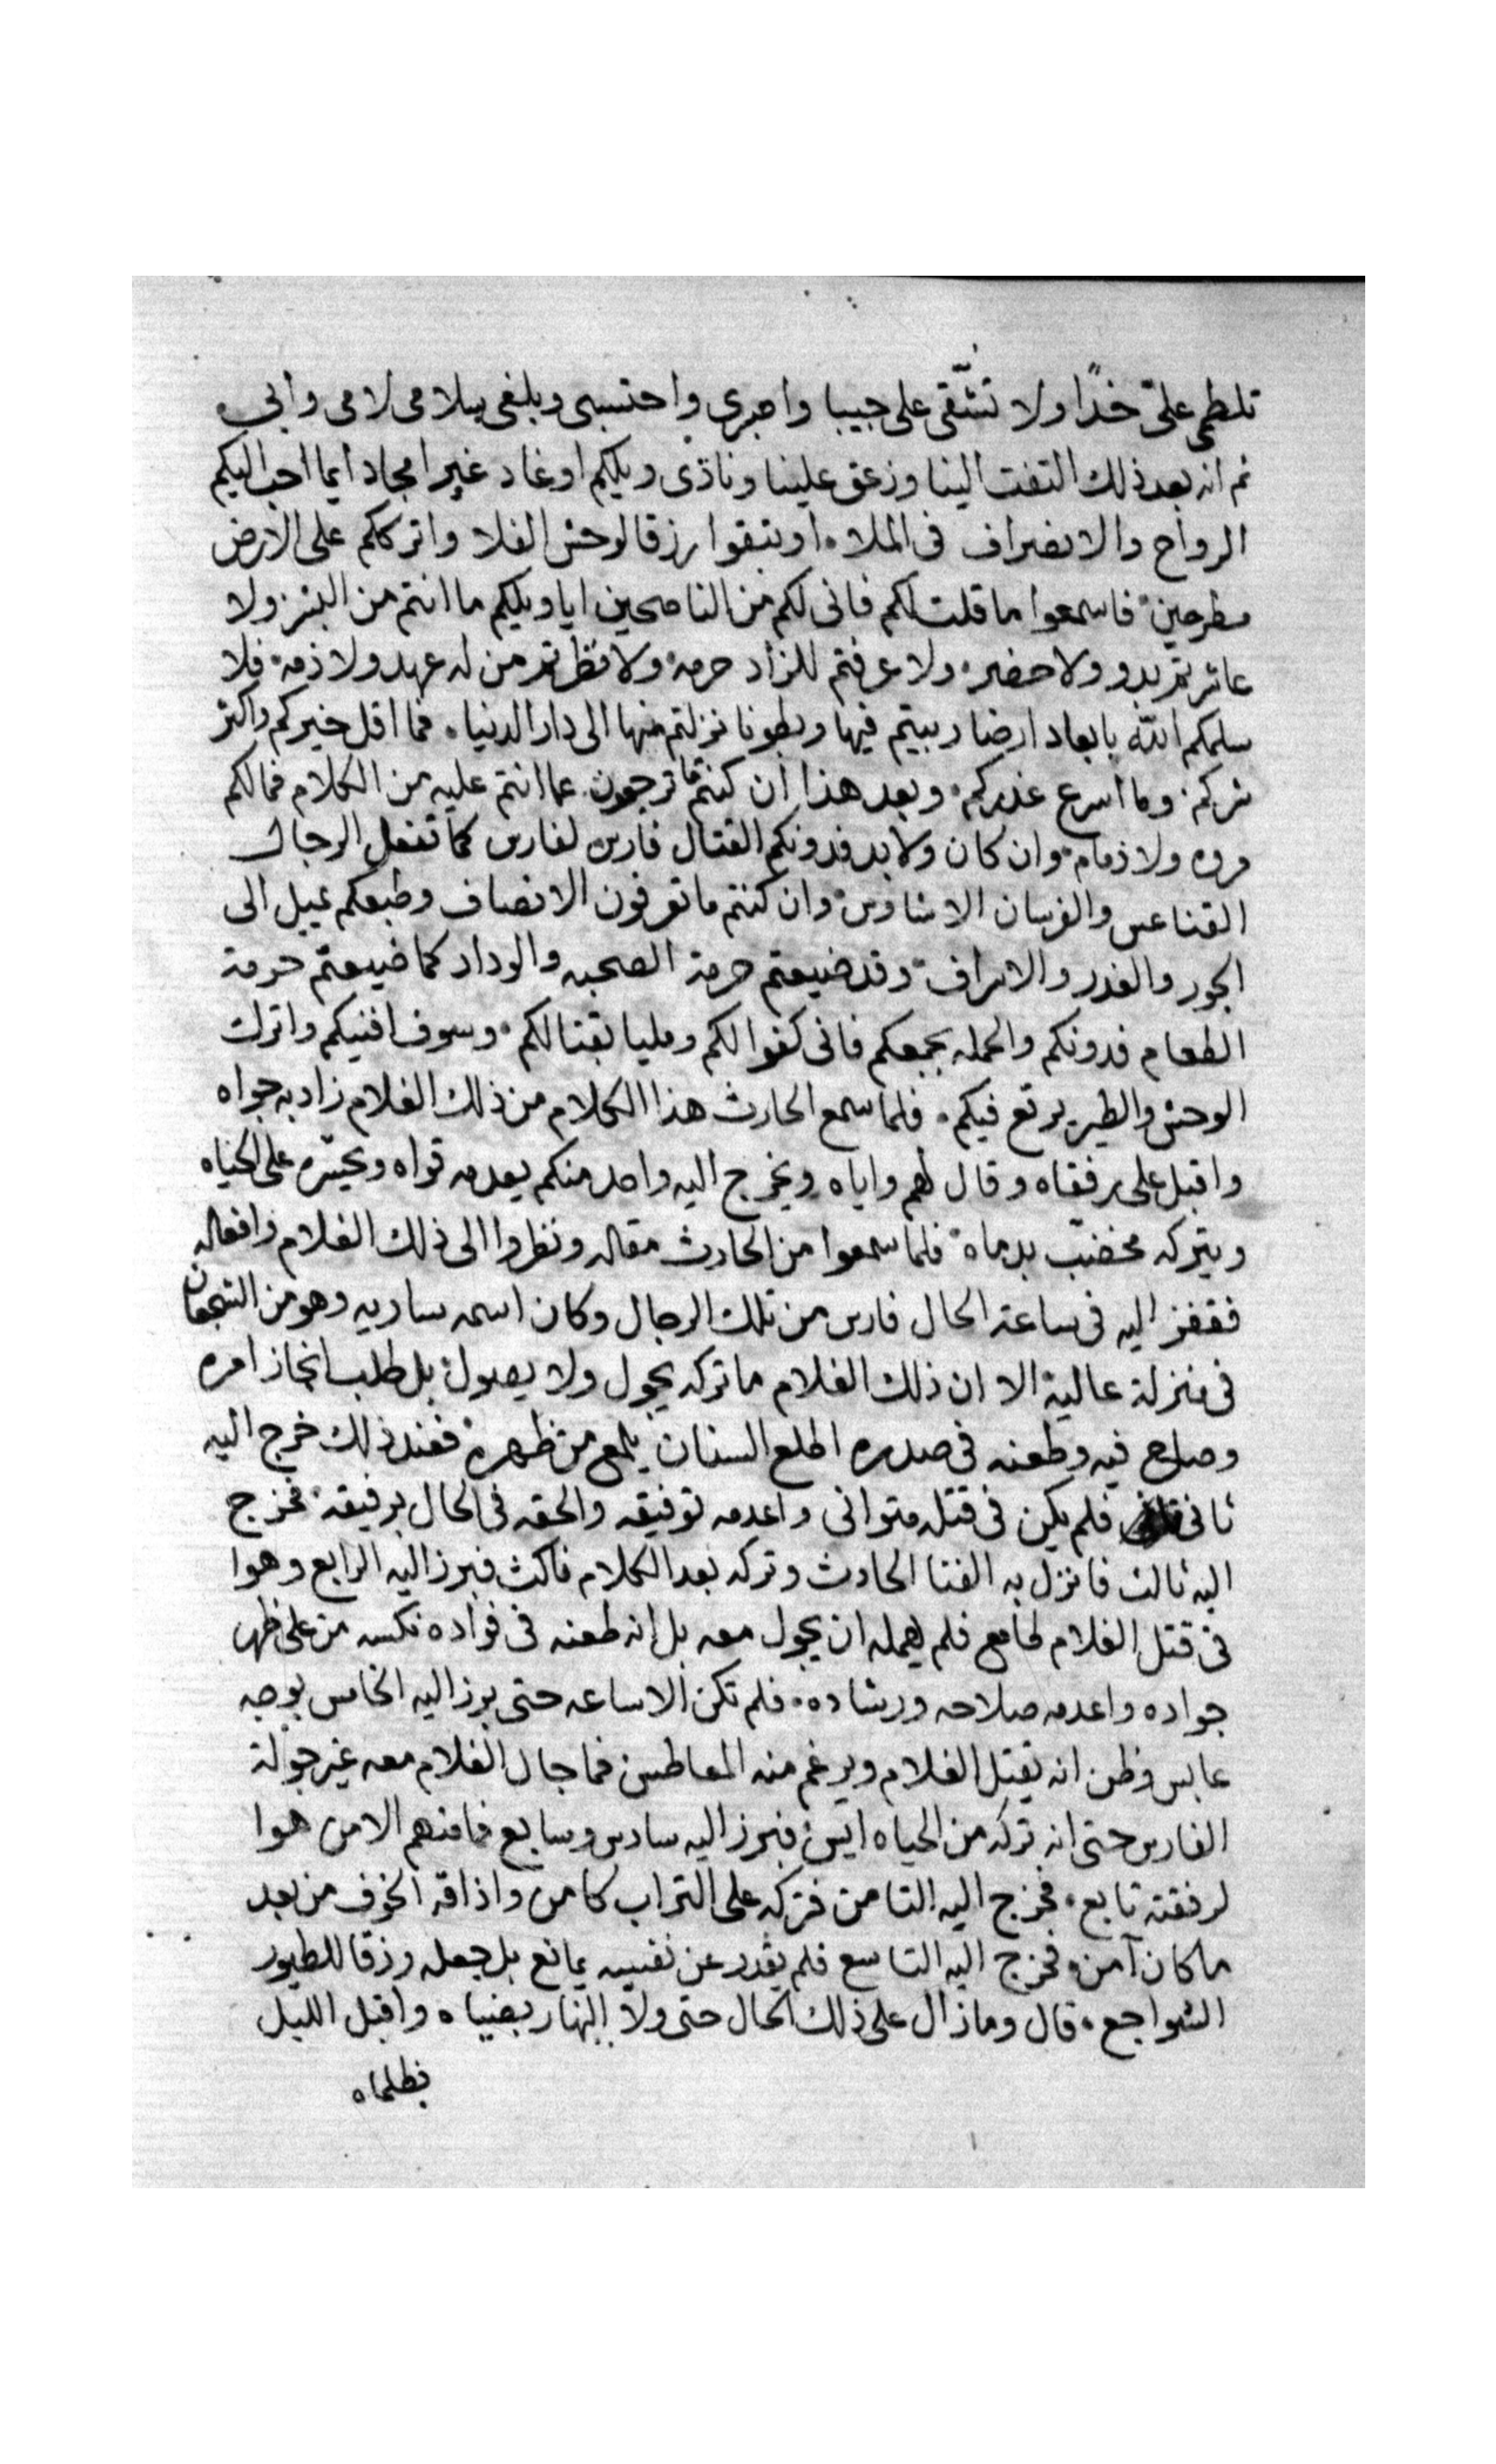 تلطمى علىّ خدًا ولا تشّقى على جيبا واصبرى واحتسبى وبلغى سلامى لامى وأبى
ثم انه بعد ذلك التفت الينا وزعق علينا ونادى ويلكم اوغاد غير امجاد ايما احب اليكم
الرواح والانصراف فى الملاه او تبقوا رزقا لوحش الفلا واترككم على الارض
مطرحين فاسمعوا ما قلت لكم فانى لكم من الناصحين ايا ويلكم ما انتم من البشر ولا
عاشرتم بدو ولا حضر ولا عرفتم للزاد حرمه ولا نظرتم من له عهد ولا ذمه فلا
سلمكم الله بابعاد ارضا ربيتم فيها وبطونا نزلتم منها الى دار الدنيا فما اقل خيركم واكثر
شركم وما اسرع غدركم وبعد هذا ان كنتم ما ترجعون عما انتم عليه من الكلام فما لكم
مروه ولا ذمام وان كان ولا بد فدونكم القتال فارس لفارس كما تفعل الرجال
القناعس والفرسان الاشاوس وان كنتم ما تعرفون الانصاف وطبعكم يميل الى
الجور والغدر والاسراف وقد ضيعتم حرمة الصحبه والوداد كما ضيعتم حرمة
الطعام فدونكم والحمله بجمعكم فانى كفوا لكم ومليا بقتالكم وسوف افنيكم واترك
الوحش والطير يرتع فيكم فلما سمع الحارث هذا الكلام من ذلك الغلام زاد به جواه
واقبل على رفقاه وقال لهم واياه ويخرج اليه واحد منكم يعدمه قواه ويحسّره على الحياه
ويتركه مخضبّ بدماه فلما سمعوا من الحارث مقاله ونظروا الى ذلك الغلام وافعاله
فقفز اليه فى ساعة الحال فارس من تلك الرجال وكان اسمه ساريه وهو من الشجعان
فى منزلة عالية الا ان ذلك الغلام ما تركه يجول ولا يصول بل طلب انجاز امره
وصاح فيه وطعنه فى صدره اطلع السنان يلمع من ظهره فعند ذلك خرج اليه
ثانى فلم يكن فى قتله متوانى واعدمه توفيقه والحقه فى الحال برفيقه فخرج
اليه ثالث فانزل به الفتا الحادث وتركه بعد الكلام ناكث فبرز اليه الرابع وهوا
فى قتل الغلام طامع فلم يمهله ان يجول معه بل انه طعنه فى فواده نكسه من على ظهر
جواده واعدمه صلاحه ورشاده فلم تكن الا ساعه حتى برز اليه الخامس بوجه
عابس وظن انه يقتل الغلام ويرغم منه المعاطس فما جال الغلام معه غير جولة
الفارس حتى انه تركه من الحياه ايس فبرز اليه سادس وسابع فما منهم الا من هوا
لرفقته تابع فخرج اليه الثامن فتركه على التراب كامن واذاقه الخوف من بعد
ما كان آمن فخرج اليه التاسع فلم يقدر عن نفسه يمانع بل جعله رزقا للطيور
الشواجع قال وما زال على ذلك الحال حتى ولا النهار بضياه واقبل الليل
بظلماه